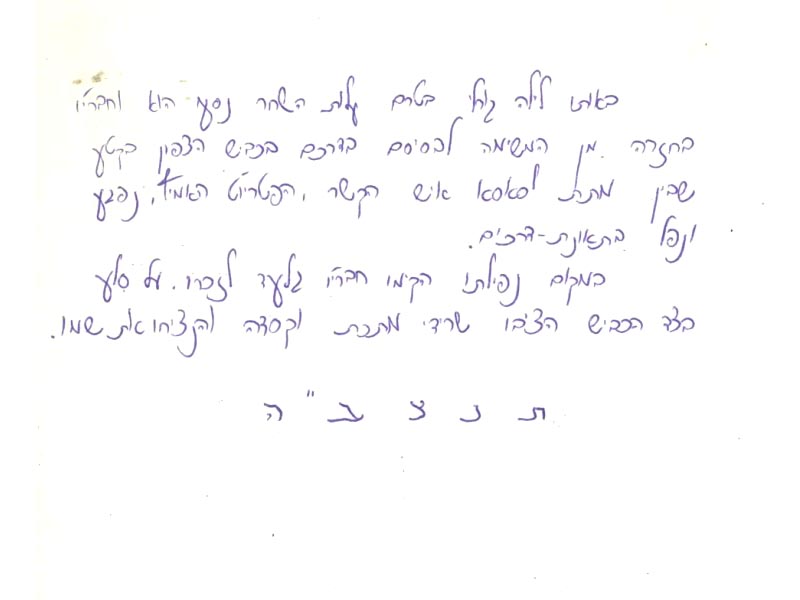 באותו לילה גורלי בטרם עלות השחר נסע הוא וחבריו
בחזרה מן המשימה לבסיסם בדרכם בכביש הצפון בקטע
שבין מתת לסאסא איש הקשר, הפטריוט האמיתי, נפגע
ונפל בתאונת-דרכים.
במקום נפילתו הקימו חבריו גלעד לזכרו. על סלע
בצד הכביש הציבו שרידי מתכת וקסדה והנציחו את שמו.
ת נ צ ב "ה